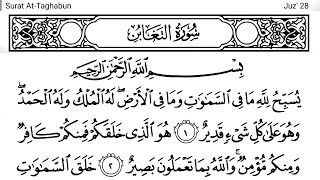 Surat At-Taghabun Juz' 28
سُورَةُ التَّغَابُنِ
بِسْمِ اللَّهِ الرَّحْمَٰنِ الرَّحِيمِ
يُسَبِّحُ لِلَّهِ مَا فِي السَّمَٰوَٰتِ وَمَا فِي الْأَرْضِ ۖ لَهُ الْمُلْكُ وَلَهُ الْحَمْدُ ۖ
وَهُوَ عَلَىٰ كُلِّ شَيْءٍ قَدِيرٌ ١ هُوَ الَّذِي خَلَقَكُمْ فَمِنكُمْ كَافِرٌ
وَمِنكُم مُّؤْمِنٌ ۚ وَاللَّهُ بِمَا تَعْمَلُونَ بَصِيرٌ ٢ خَلَقَ السَّمَٰوَٰتِ